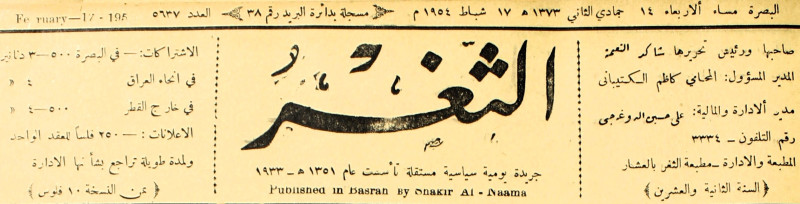 البصرة مساء ألاربعاء ١٤ جمادي الثاني ١٣٧٣ هـ ١٧ شباط ١٩٥٤ م
مسجلة بدائرة البريد رقم ٣٨
العدد ٥٦٣٧
صاحبها ورئيس تحريرها شاكر النعمة
المدير المسؤول: المحامي كاظم الكتيباني
مدير ألادارة والمالية: علي حسين
رقم التلفون ــ ٣٣٣٤
المطبعة والادارة ــ مطبعة الثغر بالعشار
﴿السنة الثانية والعشرين﴾
الثغر
جريدة يومية سياسية مستقلة تأسست عام ١٣٥١ هـ ــ ١٩٣٣
Published in Basrah By Shakir Al - Naama
الاشتراكات: ــ في البصرة ٥٠٠ــ٣ دنانير
في انحاء العراق ٤ «
في خارج القطر ٥٠٠ــ٤ «
الاعلانات : ــ ٢٥٠ فلساً للعقد الواحد
ولمدة طويلة تراجع بشأنها الادارة
﴿ ثمن النسخة ١٠ فلوس ﴾